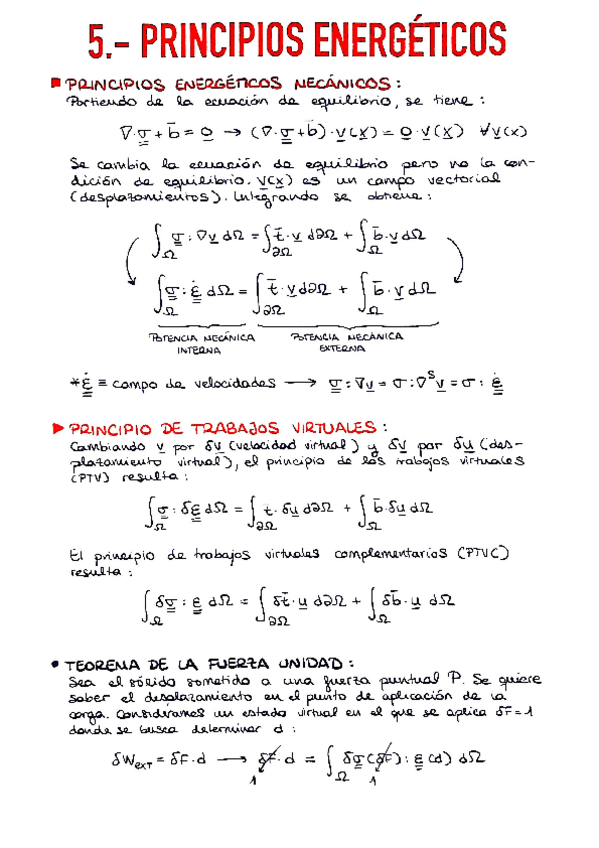 5.- PRINCIPIOS ENERGÉTICOS
PRINCIPIOS ENERGÉTICOS MECÁNICOS:
Partiendo de la ecuación de equilibrio, se tiene:
∇·σ + b̄ = 0 → (∇·σ + b̄)·v(x) = 0·v(x) ∀v(x)
Se cambia la ecuación de equilibrio pero no la con-
dición de equilibrio. v(x) es un campo vectorial
(desplazamientos). Integrando se obtiene:
∫_Ω σ : ∇v dΩ = ∫_∂Ω t̄·v d∂Ω + ∫_Ω b̄·v dΩ
∫_Ω σ : ε̇ dΩ = ∫_∂Ω t̄·v d∂Ω + ∫_Ω b̄·v dΩ
POTENCIA MECÁNICA POTENCIA MECÁNICA
INTERNA EXTERNA
*ε̇ ≡ campo de velocidades → σ : ∇v = σ : ∇ˢv = σ : ε̇
PRINCIPIO DE TRABAJOS VIRTUALES:
Cambiando v por δv (velocidad virtual) y δv por δu (des-
plazamiento virtual), el principio de los trabajos virtuales
(PTV) resulta:
∫_Ω σ : δε dΩ = ∫_∂Ω t·δu d∂Ω + ∫_Ω b̄·δu dΩ
El principio de trabajos virtuales complementarios (PTVC)
resulta:
∫_Ω δσ : ε dΩ = ∫_∂Ω δt̄·u d∂Ω + ∫_Ω δb̄·u dΩ
• TEOREMA DE LA FUERZA UNIDAD:
Sea el sólido sometido a una fuerza puntual P. Se quiere
saber el desplazamiento en el punto de aplicación de la
carga. Consideramos un estado virtual en el que se aplica δF=1
donde se busca determinar d:
δW_EXT = δF·d → δF·d = ∫_Ω δσ(δF) : ε(d) dΩ
1 1